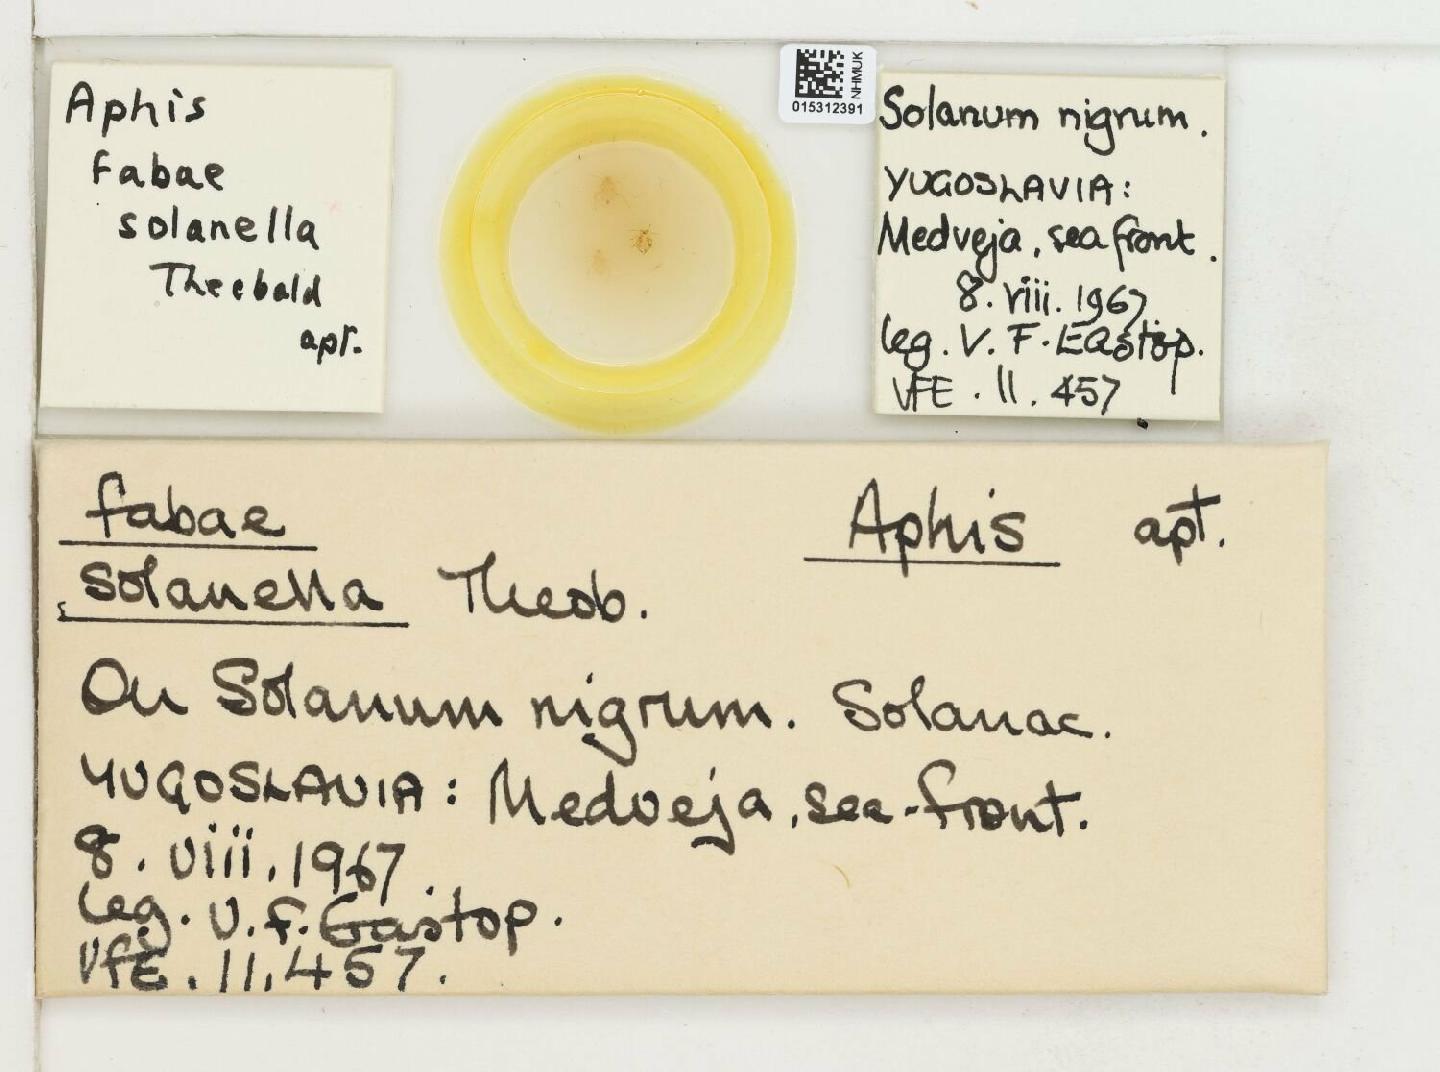 Aphis
fabae
solanella
Theobald
apt.
NHMUK
015312391
Solanum nigrum.
YUGOSLAVIA:
Medveja, sea front.
8. viii. 1967
leg. V. F. Eastop.
VFE. 11. 457
fabae
Aphis apt.
solanella Theob.
On Solanum nigrum. Solanac.
YUGOSLAVIA: Medveja, sea-front.
8. viii. 1967.
leg. V. F. Eastop.
VFE. 11. 457.